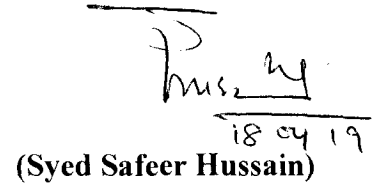 18 04 19
(Syed Safeer Hussain)